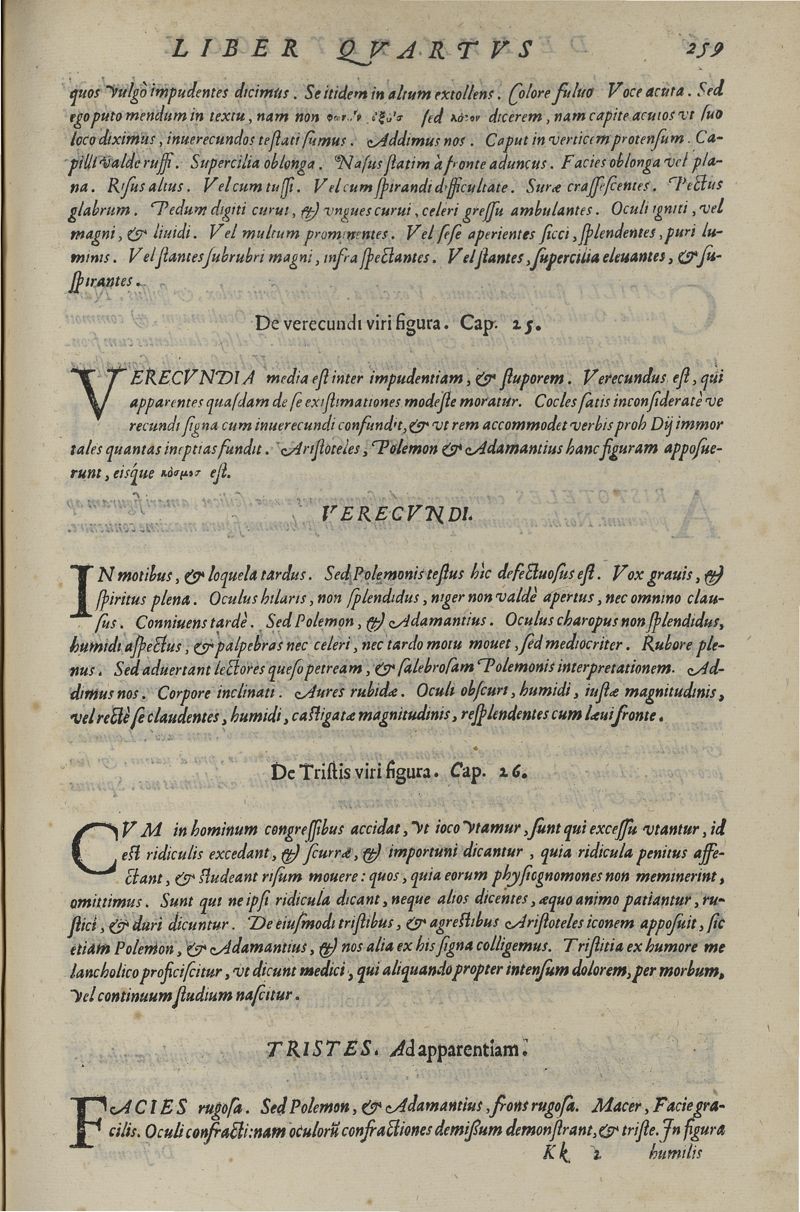 LIBER QVARTVS 259
quos vulgò impudentes dicimus. Se itidem in altum extollens. Colore fuluo Voce acuta. Sed
ego puto mendum in textu, nam non sed dicerem, nam capite acutos vt suo
loco diximus, inuerecundos testati sumus. Addimus nos. Caput in verticem protensum. Ca-
pilli valde ruffi. Supercilia oblonga. Nasus statim à fronte aduncus. Facies oblonga vel pla-
na. Risus altus. Vel cum tussi. Vel cum spirandi difficultate. Suræ crassescentes. Pectus
glabrum. Pedum digiti curui, & vngues curui, celeri gressu ambulantes. Oculi igniti, vel
magni, & liuidi. Vel multum prominentes. Vel sese aperientes sicci, splendentes, puri lu-
minis. Vel stantes subrubri magni, infra spectantes. Vel stantes, supercilia eleuantes, & su-
spirantes.
De verecundi viri figura. Cap. 25.
VERECVNDIA media est inter impudentiam, & stuporem. Verecundus est, qui
apparentes quasdam de se existimationes modeste moratur. Cocles satis inconsideratè ve
recundi signa cum inuerecundi confundit, & vt rem accommodet verbis proh Dij immor
tales quantas ineptias fundit. Aristoteles, Polemon & Adamantius hanc figuram apposue-
runt, eisq́ue κόσμιοσ est.
VERECVNDI.
IN motibus, & loquela tardus. Sed Polemonis testus hìc defectuosus est. Vox grauis, &
spiritus plena. Oculus hilaris, non splendidus, niger non valdè apertus, nec omnino clau-
sus. Conniuens tardè. Sed Polemon, & Adamantius. Oculus charopus non splendidus,
humidi aspectus, & palpebras nec celeri, nec tardo motu mouet, sed mediocriter. Rubore ple-
nus. Sed aduertant lectores queso petream, & salebrosam Polemonis interpretationem. Ad-
dimus nos. Corpore inclinati. Aures rubidæ. Oculi obscuri, humidi, iustæ magnitudinis,
vel rectè se claudentes, humidi, castigatæ magnitudinis, resplendentes cum læui fronte.
De Tristis viri figura. Cap. 26.
CVM in hominum congressibus accidat, vt ioco vtamur, sunt qui excessu vtantur, id
est ridiculis excedant, & scurræ, & importuni dicantur, quia ridicula penitus affe-
ctant, & studeant risum mouere: quos, quia eorum physicgnomones non meminerint,
omittimus. Sunt qui ne ipsi ridicula dicant, neque alios dicentes, æquo animo patiantur, ru-
stici, & duri dicuntur. De eiusmodi tristibus, & agrestibus Aristoteles iconem apposuit, sic
etiam Polemon, & Adamantius, & nos alia ex his signa colligemus. Tristitia ex humore me
lancholico proficiscitur, vt dicunt medici, qui aliquando propter intensum dolorem, per morbum,
vel continuum studium nascitur.
TRISTES. Ad apparentiam.
FACIES rugosa. Sed Polemon, & Adamantius, frons rugosa. Macer, Facie gra-
cilis. Oculi confracti: nam oculorū confractiones demißum demonstrant, & triste. In figura
Kk 2 humilis